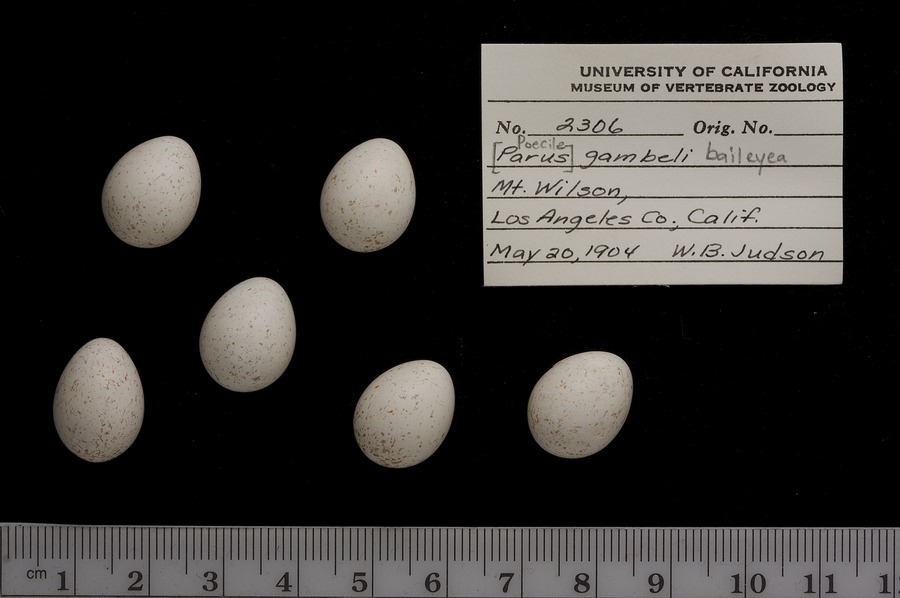 UNIVERSITY OF CALIFORNIA
MUSEUM OF VERTEBRATE ZOOLOGY
No. 2306 Orig. No.
Poecile
[Parus] gambeli baileyea
Mt. Wilson,
Los Angeles Co., Calif.
May 20, 1904 W.B. Judson
cm 1 2 3 4 5 6 7 8 9 10 11 1